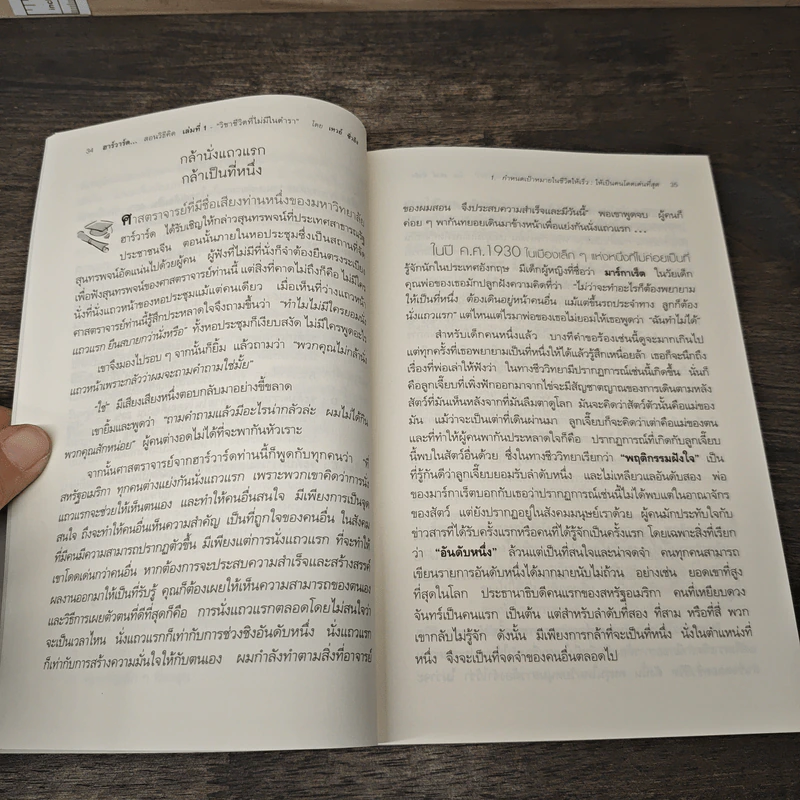 34 ฮาร์วาร์ด... สอนวิธีคิด เล่มที่ 1 - "วิชาชีวิตที่ไม่มีในตำรา" โดย
กล้านั่งแถวแรก
กล้าเป็นที่หนึ่ง
ศาสตราจารย์ที่มีชื่อเสียงท่านหนึ่งของมหาวิทยาลัย
ฮาร์วาร์ด ได้รับเชิญให้กล่าวสุนทรพจน์ที่ประเทศสาธารณรัฐ
ประชาชนจีน ตอนนั้นภายในหอประชุมซึ่งเป็นสถานที่จัด
สุนทรพจน์อัดแน่นไปด้วยผู้คน ผู้ฟังที่ไม่มีที่นั่งก็จำต้องยืนตรงระเบียง
เพื่อฟังสุนทรพจน์ของศาสตราจารย์ท่านนี้ แต่สิ่งที่คาดไม่ถึงก็คือ ไม่มีใคร
นั่งที่นั่งแถวหน้าของหอประชุมแม้แต่คนเดียว เมื่อเห็นที่ว่างแถวหน้า
ศาสตราจารย์ท่านนี้รู้สึกประหลาดใจจึงถามขึ้นว่า "ทำไมไม่มีใครยอมนั่ง
แถวแรก ยืนสบายกว่านั่งหรือ" ทั้งหอประชุมก็เงียบสงัด ไม่มีใครพูดอะไร
เขาจึงมองไปรอบ ๆ จากนั้นก็ยิ้ม แล้วถามว่า "พวกคุณไม่กล้านั่ง
แถวหน้าเพราะกลัวว่าผมจะถามคำถามใช่มั้ย"
"ใช่" มีเสียงเสียงหนึ่งตอบกลับมาอย่างขี้ขลาด
เขายิ้มและพูดว่า "ถามคำถามแล้วมีอะไรน่ากลัวล่ะ ผมไม่ได้กิน
พวกคุณสักหน่อย" ผู้คนต่างอดไม่ได้ที่จะพากันหัวเราะ
จากนั้นศาสตราจารย์จากฮาร์วาร์ดท่านนี้ก็พูดกับทุกคนว่า "ที่
สหรัฐอเมริกา ทุกคนต่างแย่งกันนั่งแถวแรก เพราะพวกเขาคิดว่าการนั่ง
แถวแรกจะช่วยให้เห็นตนเอง และทำให้คนอื่นสนใจ มีเพียงการเป็นจุด
สนใจ ถึงจะทำให้คนอื่นเห็นความสำคัญ เป็นที่ถูกใจของคนอื่น ในสังคม
ที่มีคนมีความสามารถปรากฏตัวขึ้น มีเพียงแต่การนั่งแถวแรก ที่จะทำให้
เขาโดดเด่นกว่าคนอื่น หากต้องการจะประสบความสำเร็จและสร้างสรรค์
ผลงานออกมาให้เป็นที่รับรู้ คุณก็ต้องเผยให้เห็นความสามารถของตนเอง
และวิธีการเผยตัวตนที่ดีที่สุดก็คือ การนั่งแถวแรกตลอดโดยไม่สนใจว่า
จะเป็นเวลาไหน นั่งแถวแรกก็เท่ากับการช่วงชิงอันดับหนึ่ง นั่งแถวแรก
ก็เท่ากับการสร้างความมั่นใจให้กับตนเอง ผมกำลังทำตามสิ่งที่อาจารย์
1. กำหนดเป้าหมายในชีวิตให้เร็ว : ให้เป็นคนโดดเด่นที่สุด 35
ของผมสอน จึงประสบความสำเร็จและมีวันนี้" พอเขาพูดจบ ผู้คนก็
ค่อย ๆ พากันทยอยเดินมาข้างหน้าเพื่อแย่งกันนั่งแถวแรก ...
ในปี ค.ศ.1930 ในเมืองเล็ก ๆ แห่งหนึ่งที่ไม่ค่อยเป็นที่
รู้จักนักในประเทศอังกฤษ มีเด็กผู้หญิงที่ชื่อว่า มาร์กาเร็ต ในวัยเด็ก
คุณพ่อของเธอมักปลูกฝังความคิดที่ว่า "ไม่ว่าจะทำอะไรก็ต้องพยายาม
ให้เป็นที่หนึ่ง ต้องเดินอยู่หน้าคนอื่น แม้แต่ขึ้นรถประจำทาง ลูกก็ต้อง
นั่งแถวแรก" แต่ไหนแต่ไรมาพ่อของเธอไม่ยอมให้เธอพูดว่า "ฉันทำไม่ได้"
สำหรับเด็กคนหนึ่งแล้ว บางทีคำขอร้องเช่นนี้ดูจะมากเกินไป
แต่ทุกครั้งที่เธอพยายามเป็นที่หนึ่งให้ได้แล้วรู้สึกเหนื่อยล้า เธอก็จะนึกถึง
เรื่องที่พ่อเล่าให้ฟังว่า ในทางชีววิทยามีปรากฏการณ์เช่นนี้เกิดขึ้น นั่นก็
คือลูกเจี๊ยบที่เพิ่งฟักออกมาจากไข่จะมีสัญชาตญาณของการเดินตามหลัง
สัตว์ที่มันเห็นหลังจากที่มันลืมตาดูโลก มันจะคิดว่าสัตว์ตัวนั้นคือแม่ของ
มัน แม้ว่าจะเป็นเต่าที่เดินผ่านมา ลูกเจี๊ยบก็จะคิดว่าเต่าคือแม่ของตน
และที่ทำให้ผู้คนพากันประหลาดใจก็คือ ปรากฏการณ์ที่เกิดกับลูกเจี๊ยบ
นี้พบในสัตว์อื่นด้วย ซึ่งในทางชีววิทยาเรียกว่า "พฤติกรรมฝังใจ" เป็น
ที่รู้กันดีว่าลูกเจี๊ยบยอมรับลำดับหนึ่ง และไม่เหลียวแลอันดับสอง พ่อ
ของมาร์กาเร็ตบอกกับเธอว่าปรากฏการณ์เช่นนี้ไม่ได้พบแต่ในอาณาจักร
ของสัตว์ แต่ยังปรากฏอยู่ในสังคมมนุษย์เราด้วย ผู้คนมักประทับใจกับ
ข่าวสารที่ได้รับครั้งแรกหรือคนที่ได้รู้จักเป็นครั้งแรก โดยเฉพาะสิ่งที่เรียก
ว่า "อันดับหนึ่ง" ล้วนแต่เป็นที่สนใจและน่าจดจำ คนทุกคนสามารถ
เขียนรายการอันดับหนึ่งได้มากมายนับไม่ถ้วน อย่างเช่น ยอดเขาที่สูง
ที่สุดในโลก ประธานาธิบดีคนแรกของสหรัฐอเมริกา คนที่เหยียบดวง
จันทร์เป็นคนแรก เป็นต้น แต่สำหรับลำดับที่สอง ที่สาม หรือที่สี่ พวก
เขากลับไม่รู้จัก ดังนั้น มีเพียงการกล้าที่จะเป็นที่หนึ่ง นั่งในตำแหน่งที่
หนึ่ง จึงจะเป็นที่จดจำของคนอื่นตลอดไป